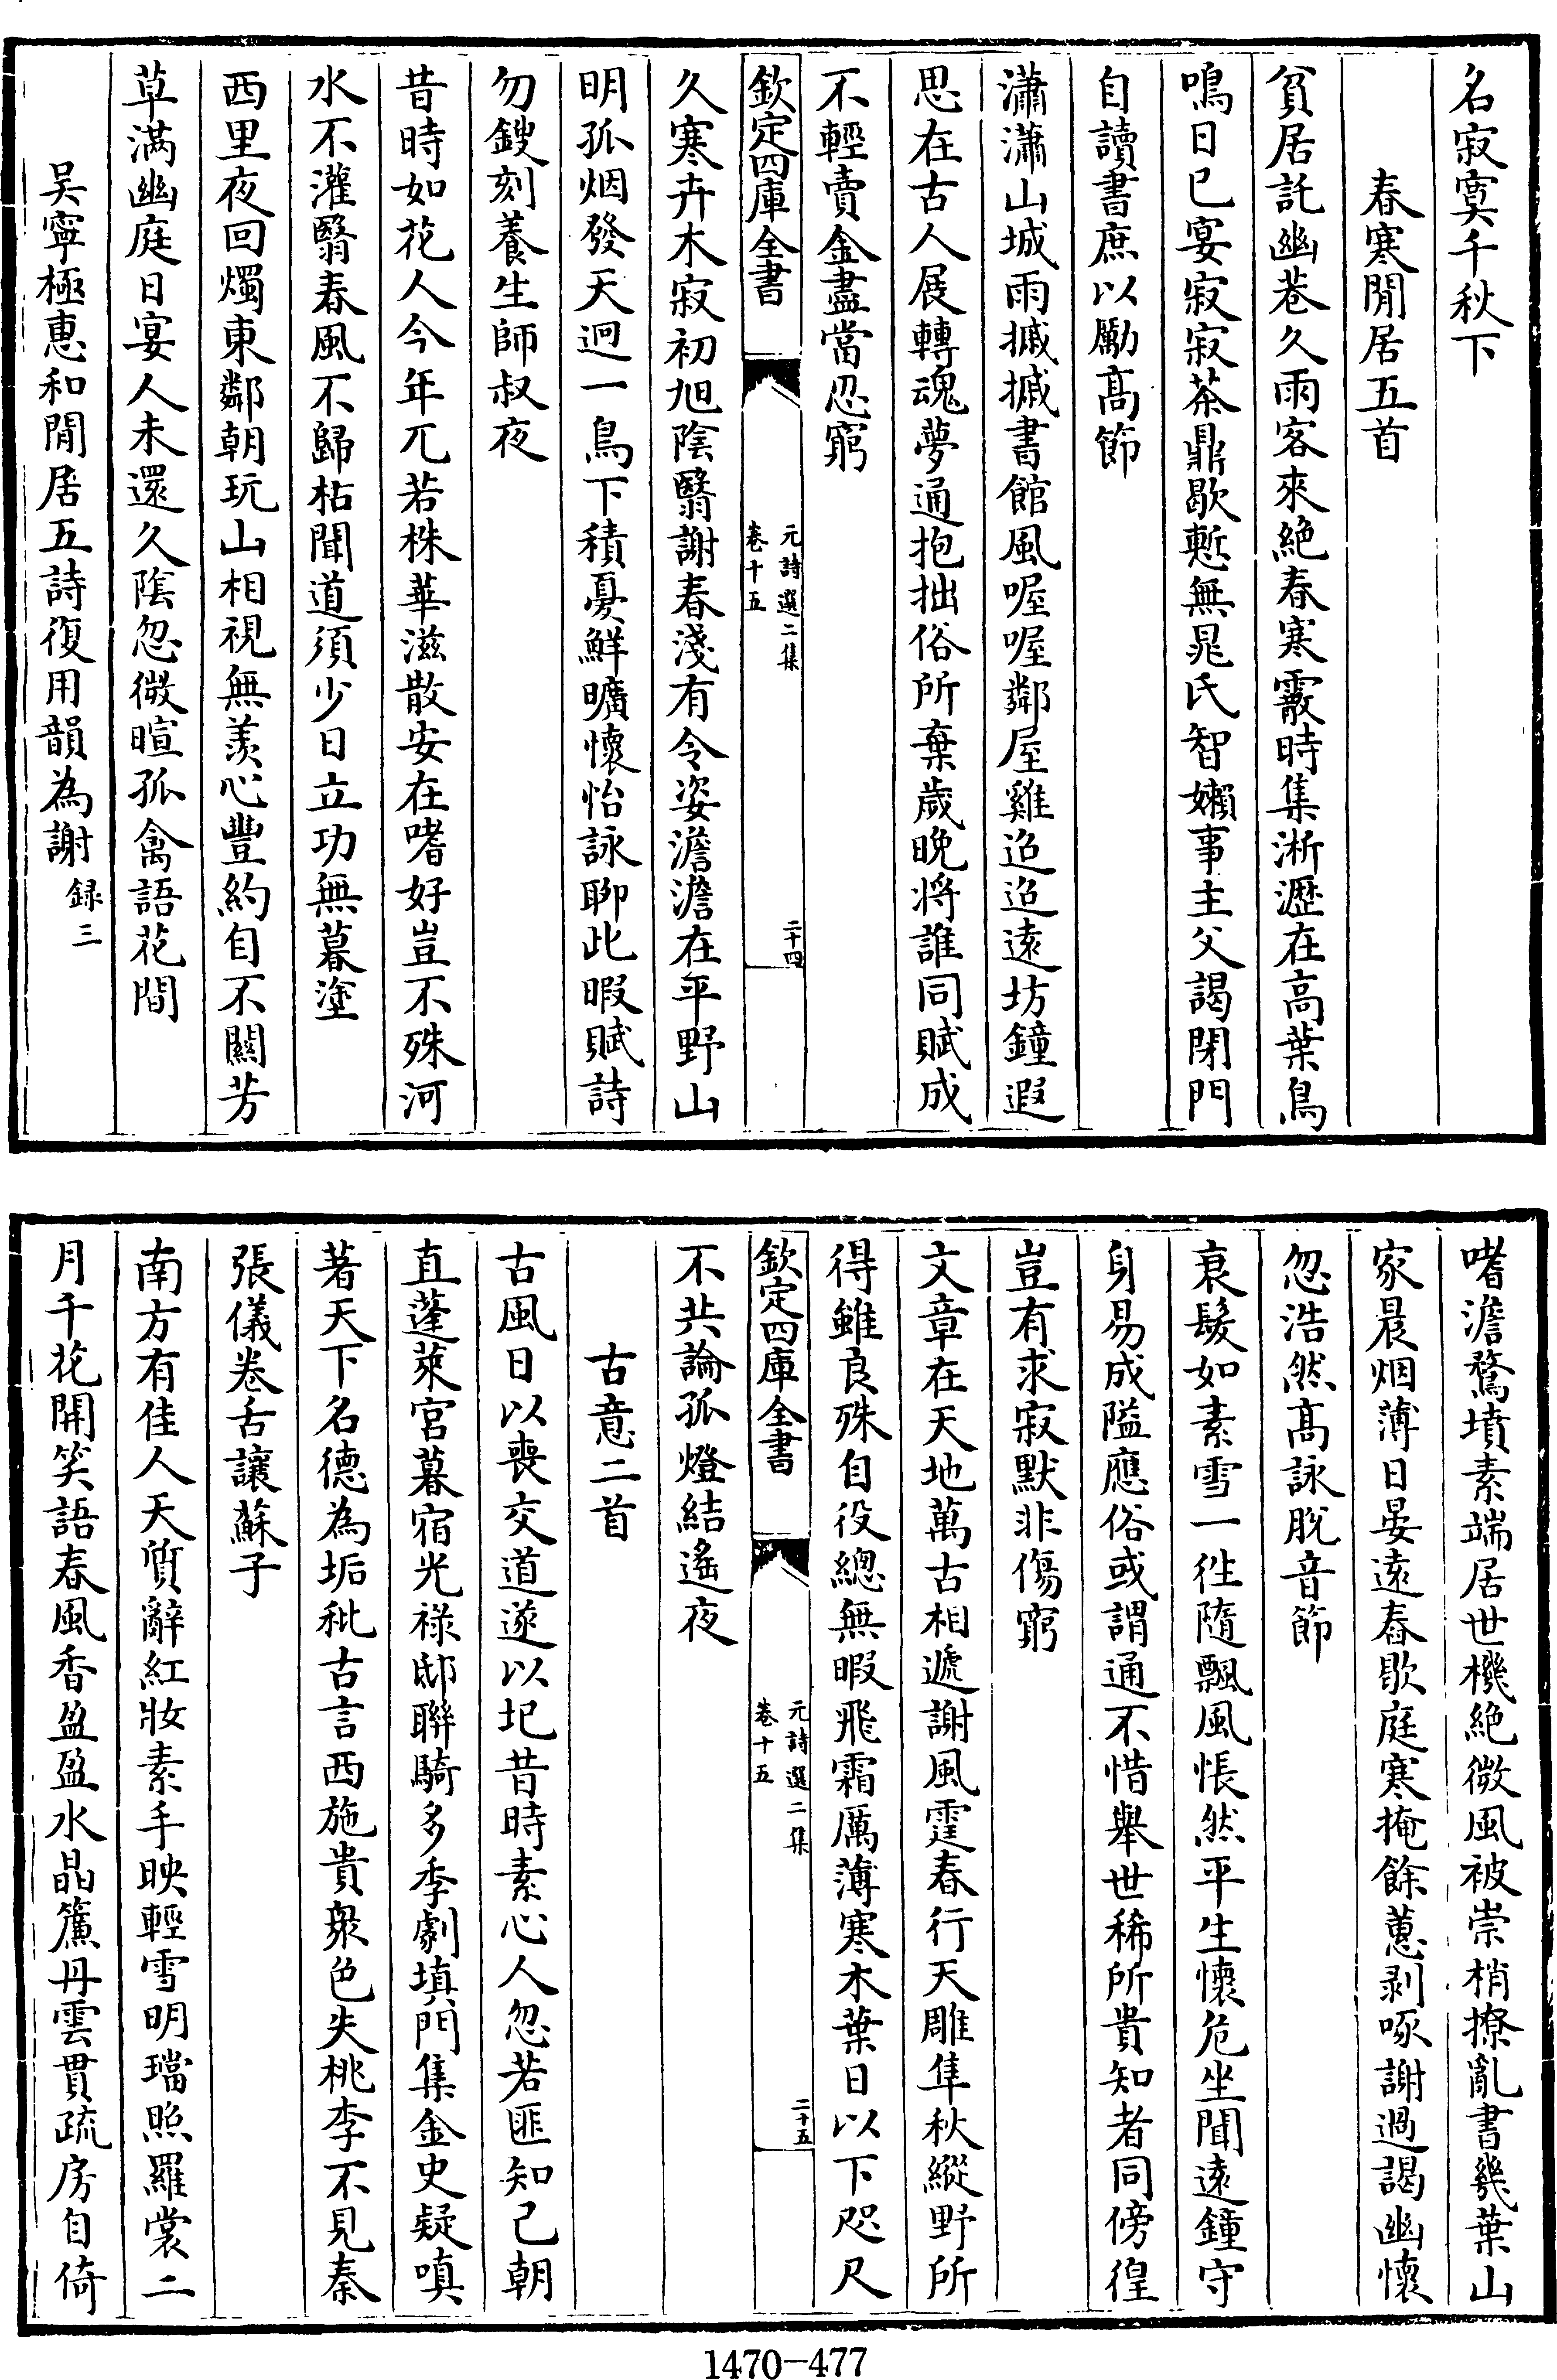 名寂寞千秋下
春寒閒居五首
貧居託幽巷久雨客來絶春寒霰時集淅瀝在高葉鳥
鳴日已宴寂寂茶鼎歇慙無晁氏智嬾事主父謁閉門
自讀書庶以勵髙節
瀟瀟山城雨摵摵書館風喔喔鄰屋雞迢迢遠坊鐘遐
思在古人展轉魂夢通抱拙俗所棄歲晚将誰同賦成
不輕賣金盡當忍窮
欽定四庫全書
元詩選二集
卷十五
二十四
久寒卉木寂初旭陰翳謝春淺有令姿澹澹在平野山
明孤烟發天迥一鳥下積憂鮮曠懷怡詠聊此暇賦詩
勿鎪刻養生師叔夜
昔時如花人今年兀若株華滋散安在嗜好豈不殊河
水不灌翳春風不歸枯聞道須少日立功無暮塗
西里夜回燭東鄰朝玩山相視無羨心豐約自不關芳
草滿幽庭日宴人未還久陰忽微暄孤禽語花間
吴寧極惠和閒居五詩復用韻為謝
録三
嗜澹騖墳素端居世機絶微風被崇梢撩亂書幾葉山
家晨烟薄日晏遠舂歇庭寒掩餘蕙剥啄謝過謁幽懷
忽浩然髙詠脱音節
衰髮如素雪一徃隨飄風悵然平生懷危坐聞遠鐘守
身易成隘應俗或謂通不惜舉世稀所貴知者同傍徨
豈有求寂默非傷窮
文章在天地萬古相遞謝風霆春行天雕隼秋縱野所
得雖良殊自役總無暇飛霜厲薄寒木葉日以下咫尺
欽定四庫全書
元詩選二集
卷十五
二十五
不共論孤燈結遙夜
古意二首
古風日以喪交道遂以圮昔時素心人忽若匪知己朝
直蓬萊宮暮宿光祿邸聯騎多季劇填門集金史疑嗔
著天下名德為垢秕古言西施貴衆色失桃李不見秦
張儀卷舌讓蘇子
南方有佳人天質辭紅妝素手映輕雪明璫照羅裳二
月千花開笑語春風香盈盈水晶簾丹雲貫疏房自倚
1470-477